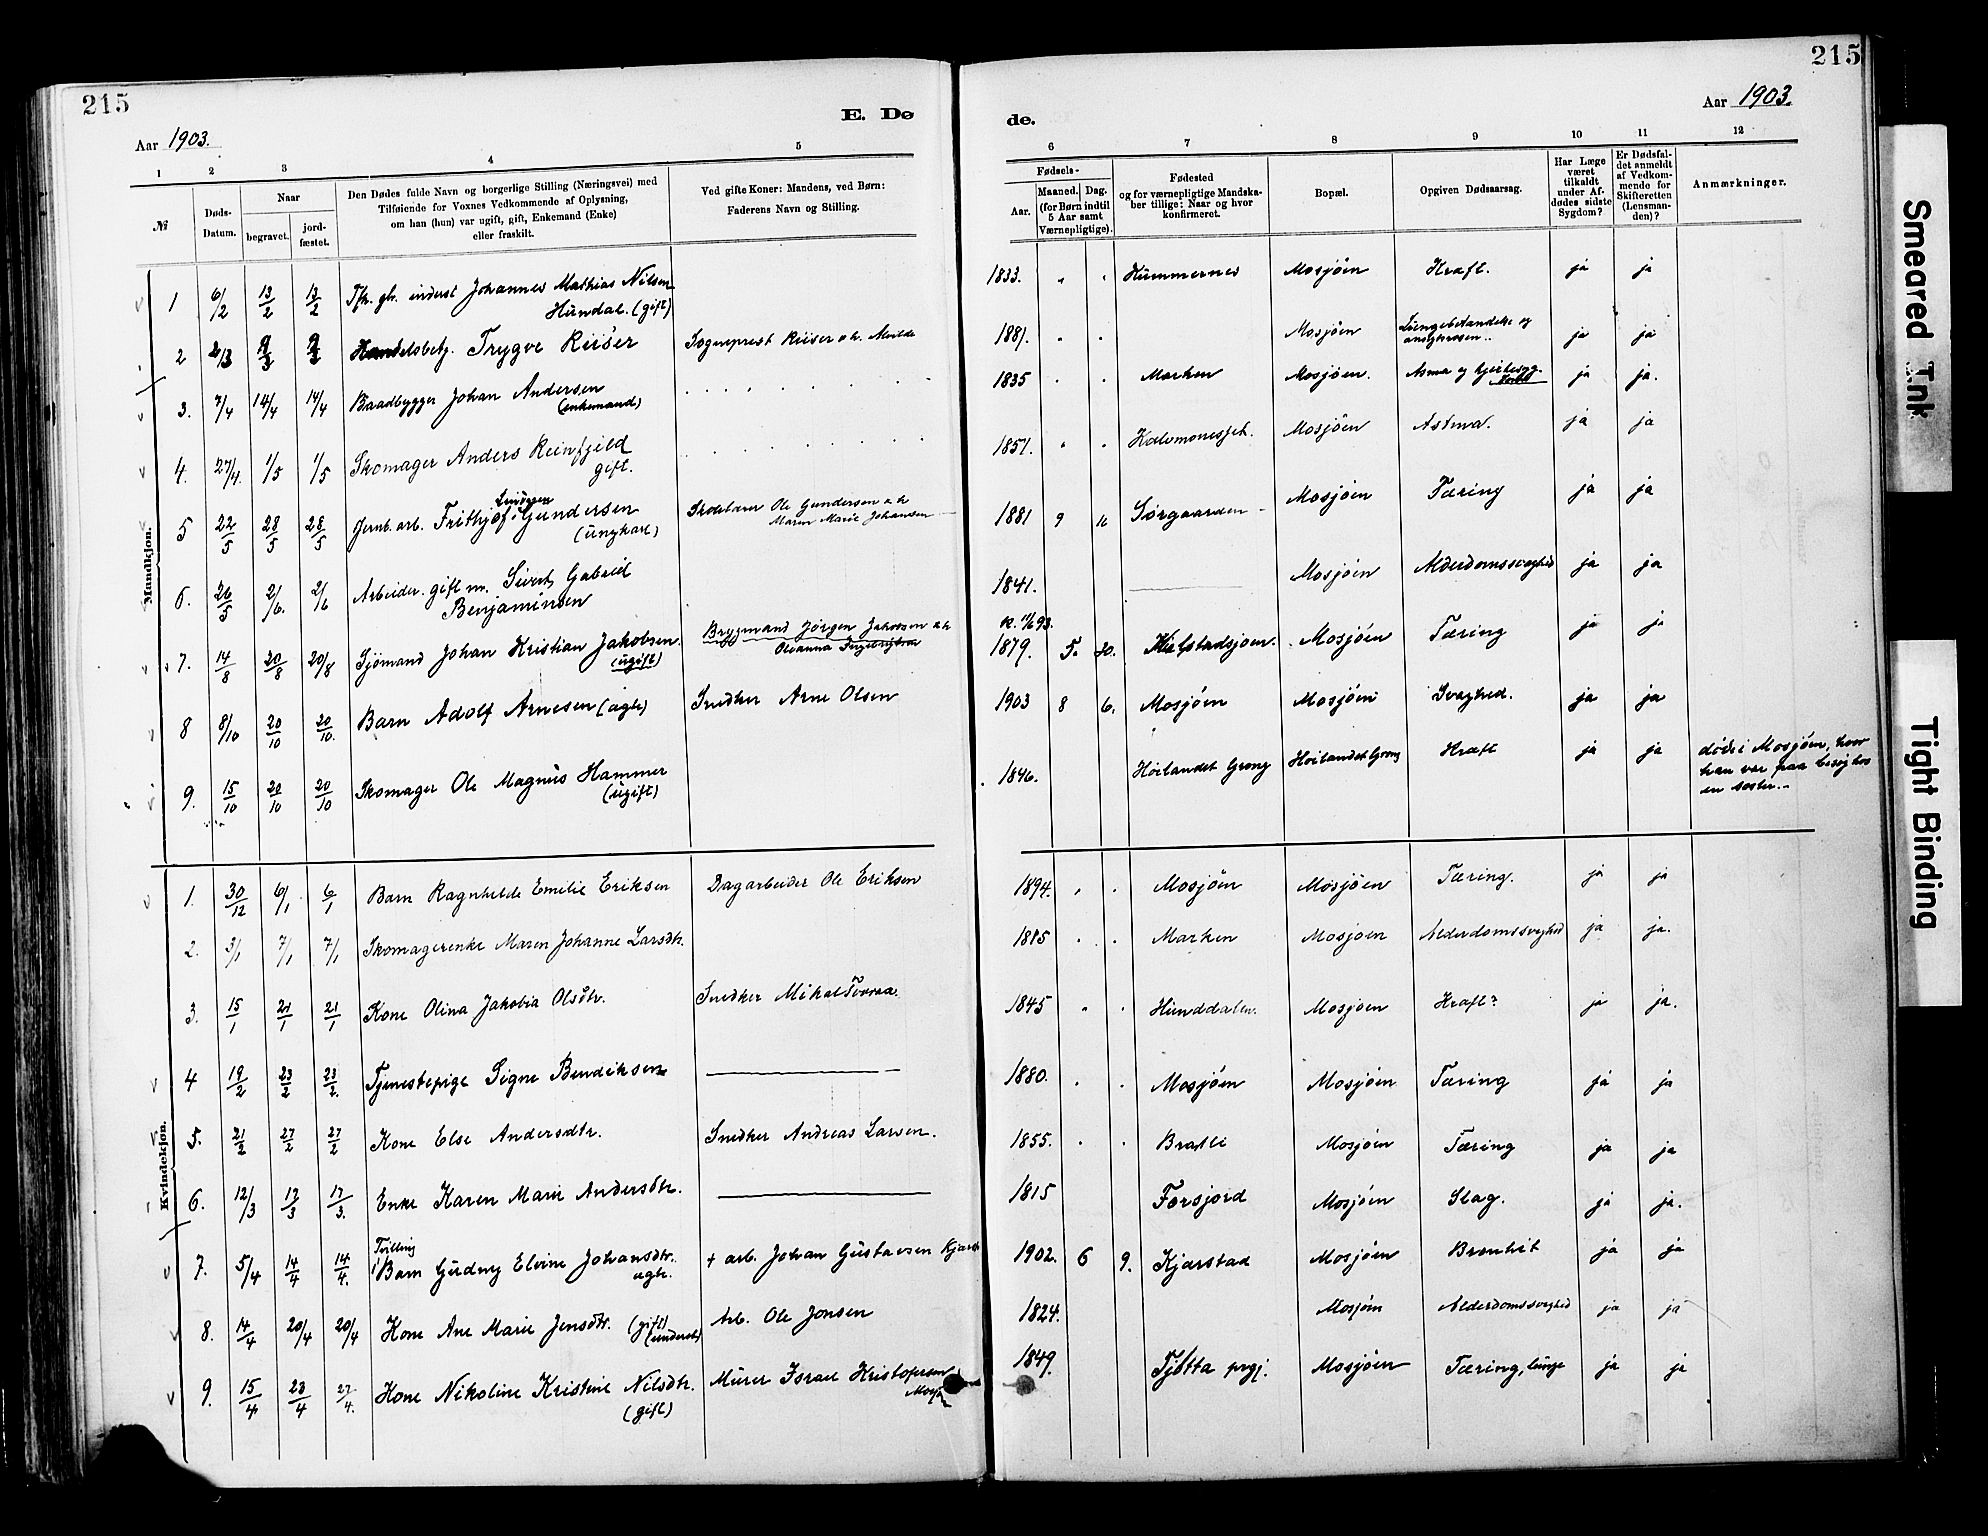 215
215
E. Dø
de.
Aar 1903.
Aar 1903.
1 2 3 4 5
6 7 8 9 10 11 12
№
Døds-Datum.
Naar
begravet.
jord-fæstet.
Den Dødes fulde Navn og borgerlige Stilling (Næringsvei) med
Tilføiende for Voxnes Vedkommende af Oplysning,
om han (hun) var ugift, gift, Enkemand (Enke)
eller fraskilt.
Ved gifte Koner: Mandens, ved Børn:
Faderens Navn og Stilling.
Fødsels-
Aar.
Maaned. Dag.
(for Børn indtil
5 Aar samt
Værnepligtige).
Fødested
og for værnepligtige Mandska-
ber tillige: Naar og hvor
konfirmeret.
Bopæl.
Opgiven Dødsaarsag.
Har Læge
været
tilkaldt
under Af-
dødes sidste
Sygdom?
Er Dødsfal-
det anmeldt
af Vedkom-
mende for
Skifteretten
(Lensman-
den)?
Anmærkninger.
Mandkjøn.
1 6/2 13/2 13/2 inderst Johannes Mathias Nilsen Hundal. (gift) 1833. Mosjöen Kræft. ja ja
2 Handelsbetj. Trygve Riiser Sogneprest Riiser 1881. Mosjöen ja ja
3. 7/4 14/4 14/4 Baadbygger Johan Andersen (enkemand) 1835 Marken Mosjöen. Asma og ja ja.
4. 27/4. 1/5 1/5 Skomager Anders Reinfjeld gift. 1851. Mosjöen Astma. ja ja
5 22/5 28/5 28/5 Jernb. arb. Frithjof Gundersen (ungkarl) Ole Gundersen Maren Marie Johansen 1881 9 Sörgaarden Mosjöen Tæring ja ja
6. 26/5 2/6. 2/6 Arbeider. gift m. Sivert Gabriel Benjaminsen 1841. Mosjöen Alderdomssvaghed ja ja
7. 14/8 20/8 20/8 Sjömand Johan Kristian Jakobsen. (ugift) Bryggmand Jörgen Jakobsen 1879. 5. 20. Mosjöen Tæring ja ja
8 8/10 20/10 20/10. Barn Adolf Arnesen (ægte) Snedker Arne Olsen 1903 8 6. Mosjöen Mosjöen Svaghed. ja ja
9. 15/10 20/10 20/10 Skomager Ole Magnus Hammer (ugift) 1846. Höilandet Grong Höilandet Grong Kræft ja ja död i Mosjöen, hvor
han var paa besög hos
en søster.
Kvindekjøn.
1. 30/12 6/1 6/1 Barn Ragnhilde Emilie Eriksen Dagarbeider Ole Eriksen 1894. Mosjöen Mosjöen Tæring. ja ja
2. 3/1 7/1 7/1 Skomagerenke Maren Johanne Larsdtr. 1815 Marken Mosjoen Alderdomssvaghed ja ja.
3. 15/1 21/1 21/1 Kone Olina Jakobia Olsdtr. Snedker Mikal 1845 Hunddalen. Mosjoen Kræft? ja ja.
4 19/2 23/2 23/2. Tjenestepige Signe Bendiksen 1880. Mosjöen Mosjöen Tæring ja ja
5. 21/2 27/2 27/2 Kone Else Andersdtr. Snedker Andreas Larsen. 1855. Bratli Mosjöen Tæring ja ja
6. 12/3 17/3 17/3. Enke Karen Marie Andersdtr. 1815 Forsjord Mosjöen Slag. ja ja.
7. 5/4 14/4 14/4. Tvilling Barn Gudny Elvine Johansdtr. ægte. + arb. Johan Gustavsen 1902. 6 9. Kjærstad Mosjöen Bronkit ja ja
8. 14/4 20/4 20/4 Kone Ane Marie Jensdtr. (gift) (inderst) Arb. Ole Jonsen 1824. Mosjöen Alderdomssvaghed ja ja
9. 15/4 23/4 27/4. Kone Nikoline Kristine Nilsdtr. (gift) Murer Israel Kristofersen 1849. Tjötta prgj. Mosjöen Tæring, lunge ja ja
Smeared Ink
Tight Binding